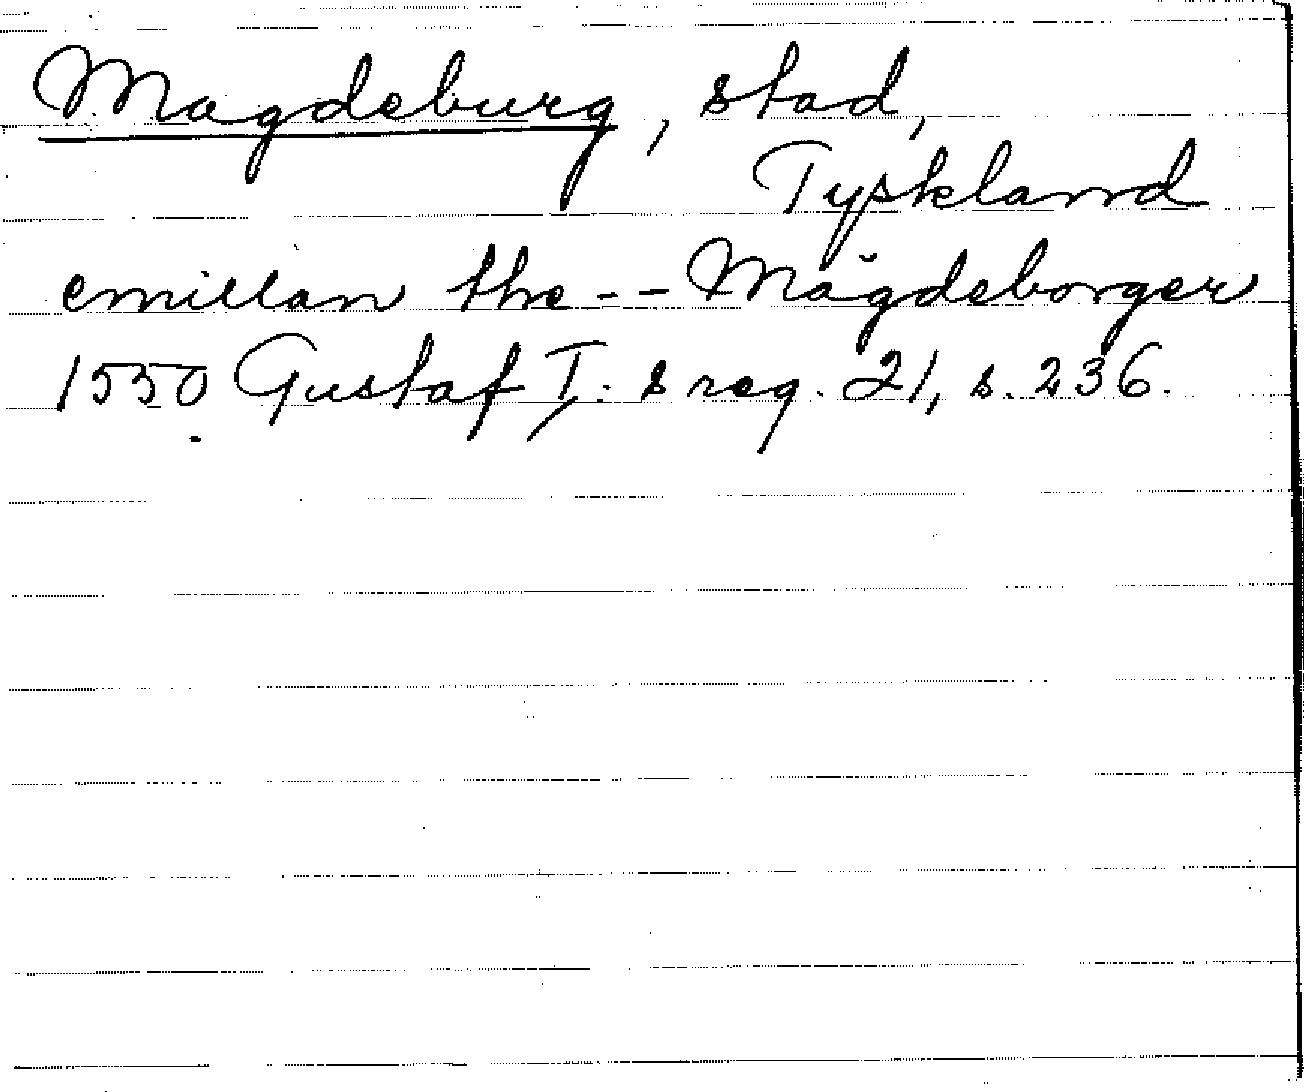 Magdeburg, stad,
Tyskland
emillan the -- Mägdeborger
1550 Gustaf I:s reg. 21, s. 236.